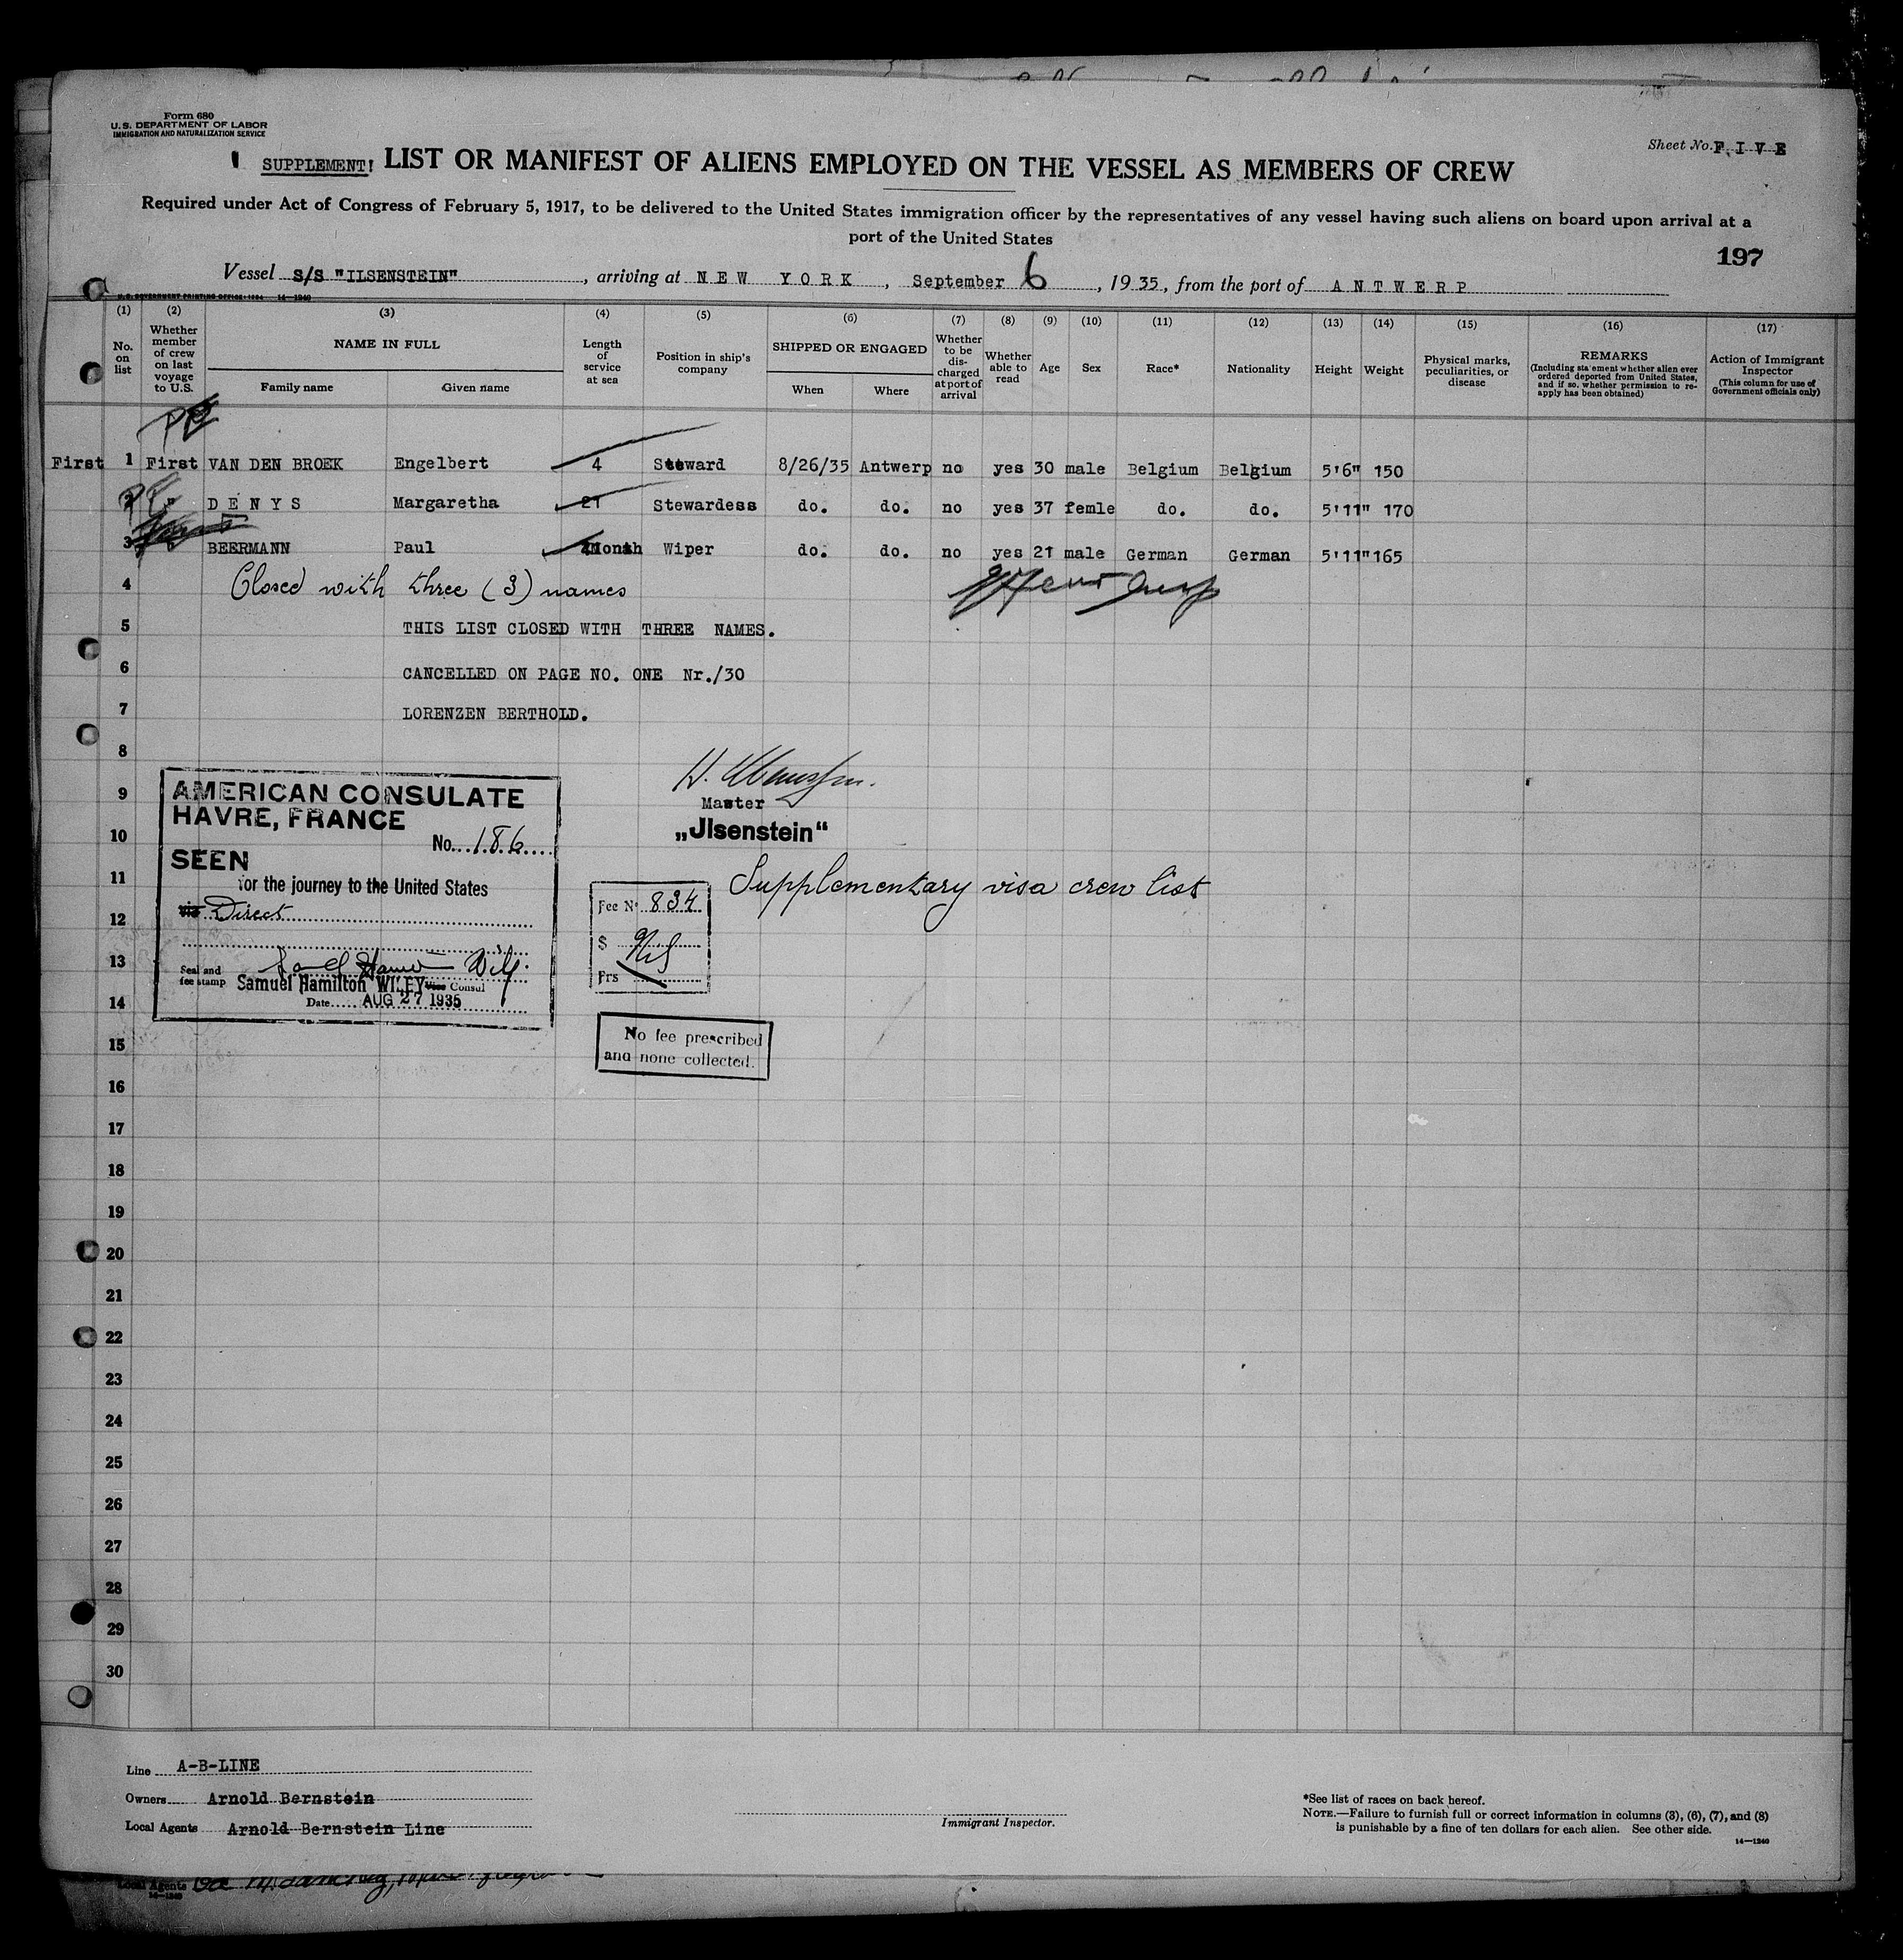 Form 680
U.S. DEPARTMENT OF LABOR
IMMIGRATION AND NATURALIZATION SERVICE
Sheet No. F I V E
SUPPLEMENT! LIST OR MANIFEST OF ALIENS EMPLOYED ON THE VESSEL AS MEMBERS OF CREW
Required under Act of Congress of February 5, 1917, to be delivered to the United States immigration officer by the representatives of any vessel having such aliens on board upon arrival at a
port of the United States
197
Vessel S/S "ILSENSTEIN", arriving at N E W Y O R K, September 6, 1935, from the port of A N T W E R P
U.S. GOVERNMENT PRINTING OFFICE: 1934 14—1240
(1) No. on list
(2) Whether member of crew on last voyage to U.S.
(3) NAME IN FULL
Family name Given name
(4) Length of service at sea
(5) Position in ship's company
(6) SHIPPED OR ENGAGED
When Where
(7) Whether to be discharged at port of arrival
(8) Whether able to read
(9) Age
(10) Sex
(11) Race*
(12) Nationality
(13) Height
(14) Weight
(15) Physical marks, peculiarities, or disease
(16) REMARKS (Including statement whether alien ever ordered deported from United States, and if so, whether permission to re-apply has been obtained)
(17) Action of Immigrant Inspector (This column for use of Government officials only)
First 1 First VAN DEN BROEK Engelbert 4 Steward 8/26/35 Antwerp no yes 30 male Belgium Belgium 5'6" 150
2 " D E N Y S Margaretha 21 Stewardess do. do. no yes 37 femle do. do. 5'11" 170
3 BEERMANN Paul Month Wiper do. do. no yes 21 male German German 5'11" 165
4 Closed with three (3) names
5 THIS LIST CLOSED WITH THREE NAMES.
6 CANCELLED ON PAGE NO. ONE Nr./30
7 LORENZEN BERTHOLD.
8
9
10
11
12
13
14
15
16
17
18
19
20
21
22
23
24
25
26
27
28
29
30
AMERICAN CONSULATE
HAVRE, FRANCE
No. 186
SEEN
for the journey to the United States
via Direct
Seal and fee stamp
Samuel Hamilton WILEY Vice Consul
Date AUG 27 1935
Master
„Jlsenstein“
Supplementary visa crew list
Fee No 834
$ Nil
Frs
No fee prescribed
and none collected.
Line A-B-LINE
Owners Arnold Bernstein
Local Agents Arnold Bernstein Line
Immigrant Inspector.
*See list of races on back hereof.
NOTE.—Failure to furnish full or correct information in columns (3), (6), (7), and (8)
is punishable by a fine of ten dollars for each alien. See other side.
14—1240
Local Agents
14—1240